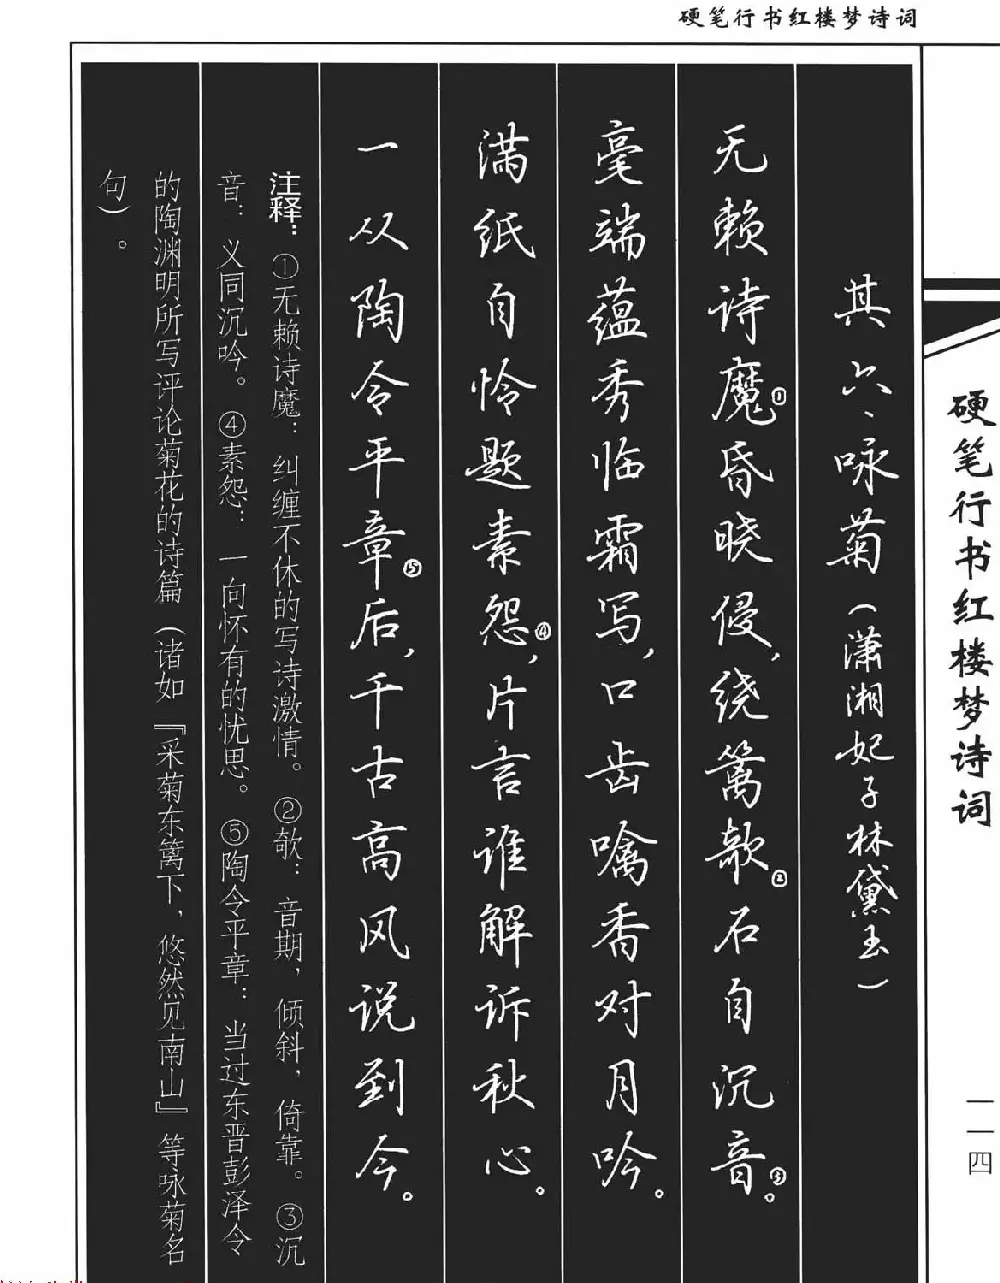 硬笔行书红楼梦诗词
硬笔行书红楼梦诗词
一一四
其六、咏菊(潇湘妃子林黛玉)
无赖诗魔①昏晓侵,绕篱欹②石自沉音③。
毫端蕴秀临霜写,口齿噙香对月吟。
满纸自怜题素怨④,片言谁解诉秋心。
一从陶令平章⑤后,千古高风说到今。
注释:①无赖诗魔:纠缠不休的写诗激情。②欹:音期,倾斜,倚靠。③沉
音:义同沉吟。④素怨:一向怀有的忧思。⑤陶令平章:当过东晋彭泽令
的陶渊明所写评论菊花的诗篇(诸如『采菊东篱下,悠然见南山』等咏菊名
句)。